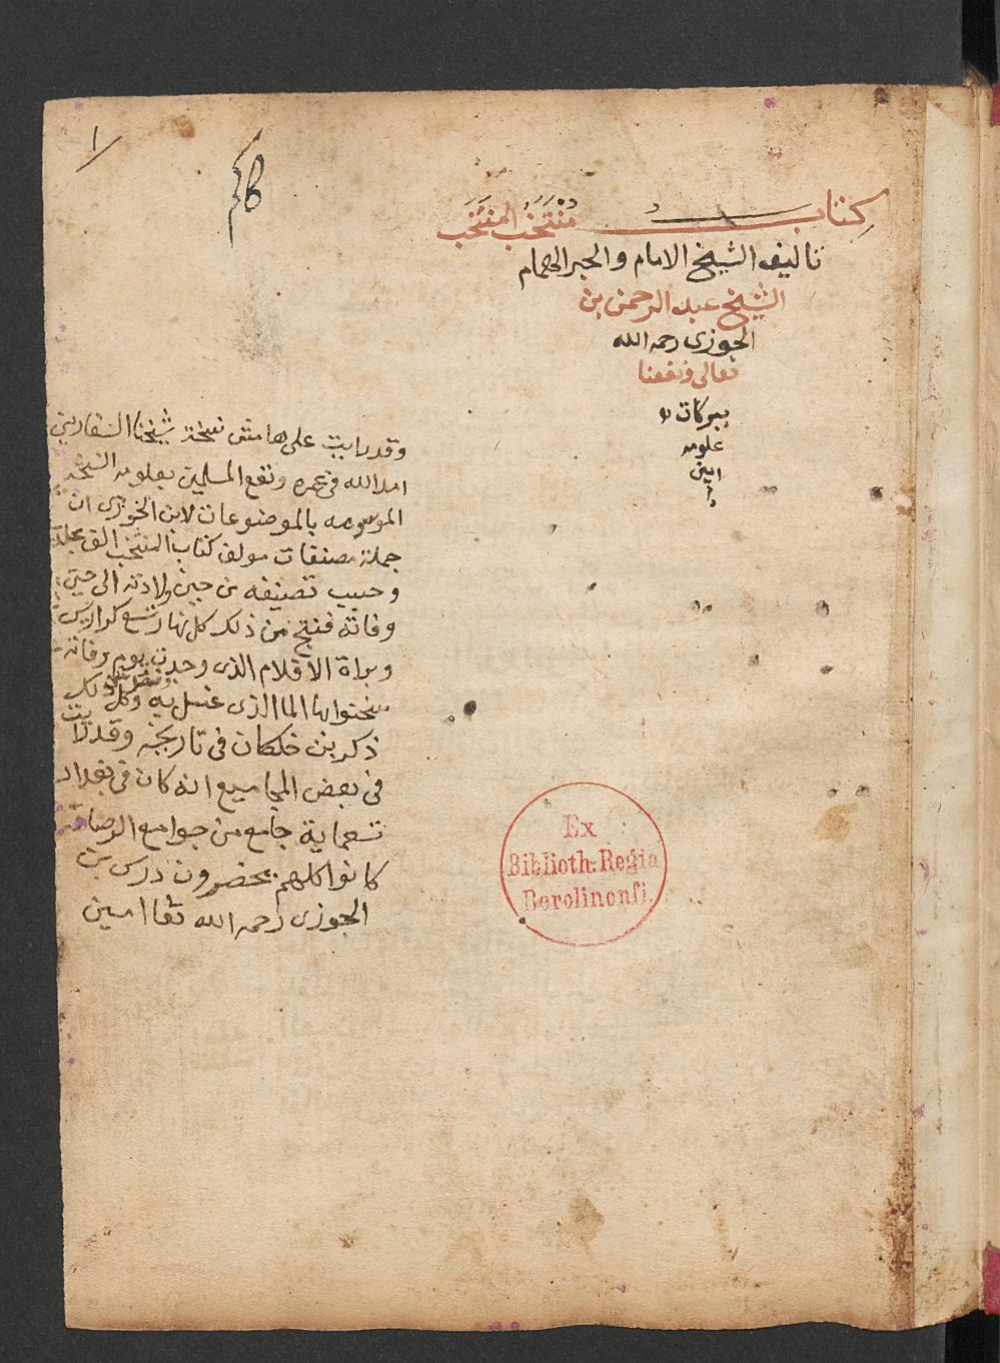 ١
كتاب منتخب المنتخب
تاليف الشيخ الامام والحبر الهمام
الشيخ عبد الرحمن بن
الجوزى رحمه الله
تعالى ونفعنا
ببركات
علومه
امين
وقد رايت على هامش نسخة شيخنا السفاريني
امد الله في عمره ونفع المسلمين بعلومه النسخة
الموسومه بالموضوعات لابن الجوزى ان
جملة مصنفات مولف كتاب المنتخب الف مجلد
وحسب تصنيفه من حين ولادته الى حين
وفاته فنتج من ذلك كل نهار تسع كراريس
وبراة الاقلام الذى وجدت يوم وفاته
سخنوا بها الما الذى غسل به وكل ذلك
ذكر بن خلكان فى تاريخه وقد رايت
فى بعض المجاميع انه كان فى بغداد
تسعماية جامع من جوامع الرصافة
كانوا كلهم يحضرون درس بن
الجوزى رحمه الله تعا امين
Ex
Biblioth. Regia
Berolinensi.